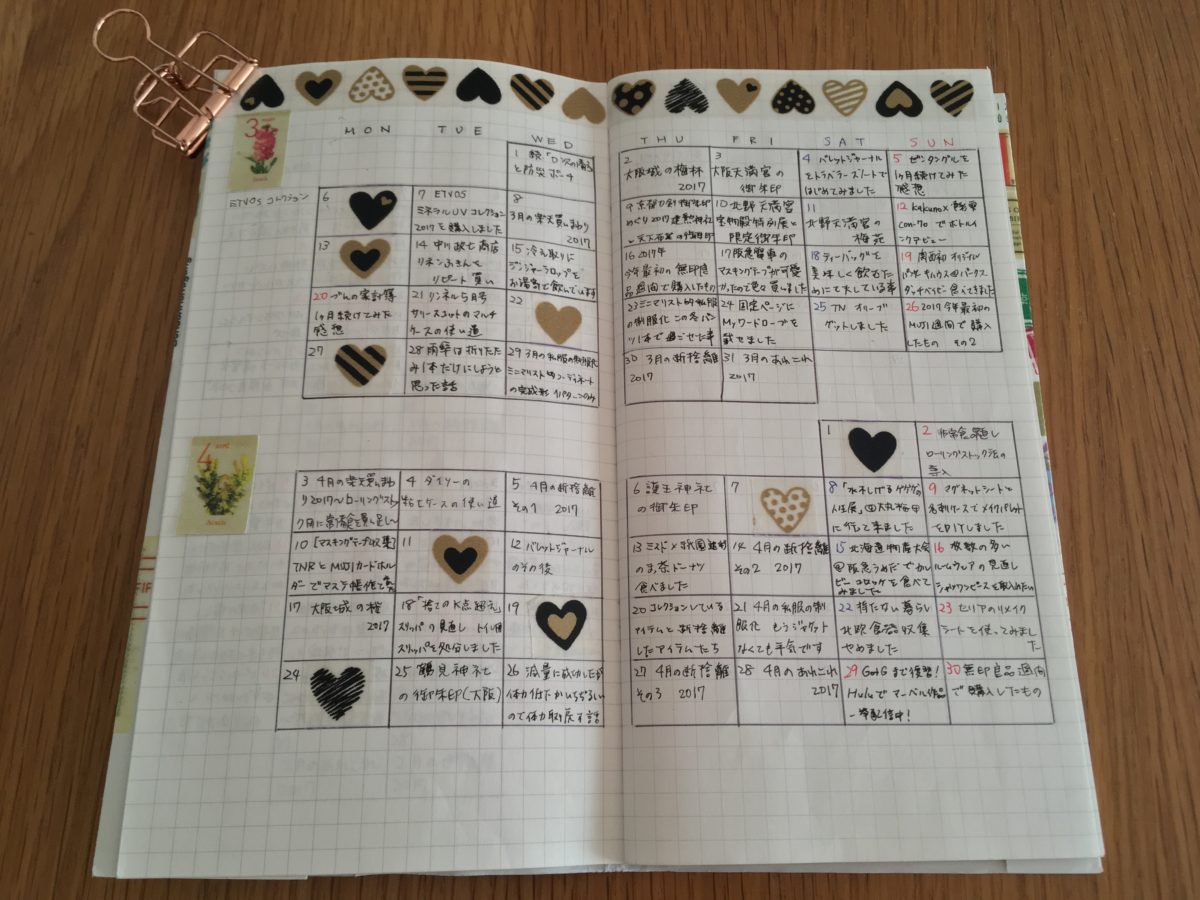 3
MON TUE WED THU FRI SAT SUN
1
と防災ポーチ
2
大阪城の梅林
2017
3
大阪天満宮の
御朱印
4 バレットジャーナル
をトラベラーズノートで
はじめてみました
5 ゼンタングルを
1ヶ月続けてみた
感想
ETVOS コレクション
6
7 ETVOS
ミネラルUVコレクション
2017を購入しました
8
3月の楽天買いまわり
2017
9 京都刀剣御朱印
めぐり2017 建勲神社
10 北野天満宮
宝物殿特別展と
限定御朱印
11
北野天満宮の
梅苑
12 kakuno×
con-70でボトルイ
ンクデビュー
13
14 中川政七商店
リネンふきんを
リピート買い
15 冷え取りに
ジンジャーシロップを
お湯割で飲んでいます
16 2017年
今年最初の無印良
品週間で購入したもの
17 阪急電車の
マスキングテープが可愛
かったので色々買いました
18 ティーバッグを
美味しく飲むた
めにて大している事
19
20 づんの家計簿
1ヶ月続けてみた
感想
21 リンネル5月号
サリースコットのマルチ
ケースの使い道
22
23 ミニマリスト的私服
の制服化 この冬パン
ツ1本で過ごせた事
24 固定ページに
Myワードローブを
載せました
25 TN オリーブ
ゲットしました
26 2017今年最初の
MUJI週間で購入
したもの その2
27
28 雨傘は折りたた
み1本だけにしようと
思った話
29 3月の私服の制服化
ミニマリスト的コーディネート
の完成形 1パターンのみ
30 3月の断捨離
2017
31 3月のあれこれ
2017
4
1
2 非常食の見直し
ローリングストック法の
導入
3 4月の楽天買いまわ
り2017〜ローリングスト
ック用に常備食を買い足し〜
4 ダイソーの
粘土ケースの使い道
5 4月の断捨離
その1 2017
6 護王神社
の御朱印
7
8 「水木しげるゲゲゲの
人生展」@大丸梅田
に行って来ました
9 マグネットシートと
名刺ケースでメイクパレット
をDIYしました
10 [マスキングテープ収集]
TNRとMUJIカードホル
ダーでマステ帳作ってみた
11
12 バレットジャーナル
のその後
13 ミスド×祇園辻利
のお茶ドーナツ
食べました
14 4月の断捨離
その2 2017
15 北海道物産大会
@阪急うめだでカル
ビーコロッケを食べて
みました
16 枚数の多い
ルームウェアの見直し
シャツワンピースを取入れたい
17 大阪城の桜
2017
18 「捨てのK点超え」
スリッパの見直し トイレ用
スリッパを処分しました
19
20 コレクションしている
アイテムと断捨離
したアイテムたち
21 4月の私服の制
服化 もうジャケット
なくても平気です
22 持たない暮らし
北欧食器収集
やめました
23 セリアのリメイク
シートを使ってみまし
た
24
25 鶴見神社
の御朱印(大阪)
26 減量に成功したが
体力低下がいちぢるしい
ので体力取り戻す話
27 4月の断捨離
その3 2017
28 4月のあれこれ
2017
29 GotGまで復習!
Huluでマーベル作品
一挙配信中!
30 無印良品週間
で購入したもの